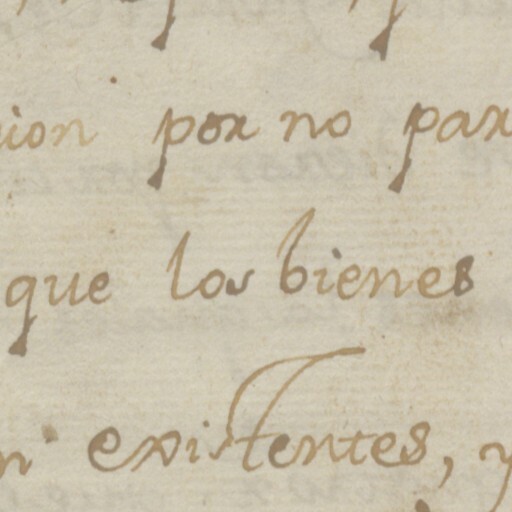 cion por no par
que los bienes
n existentes, y